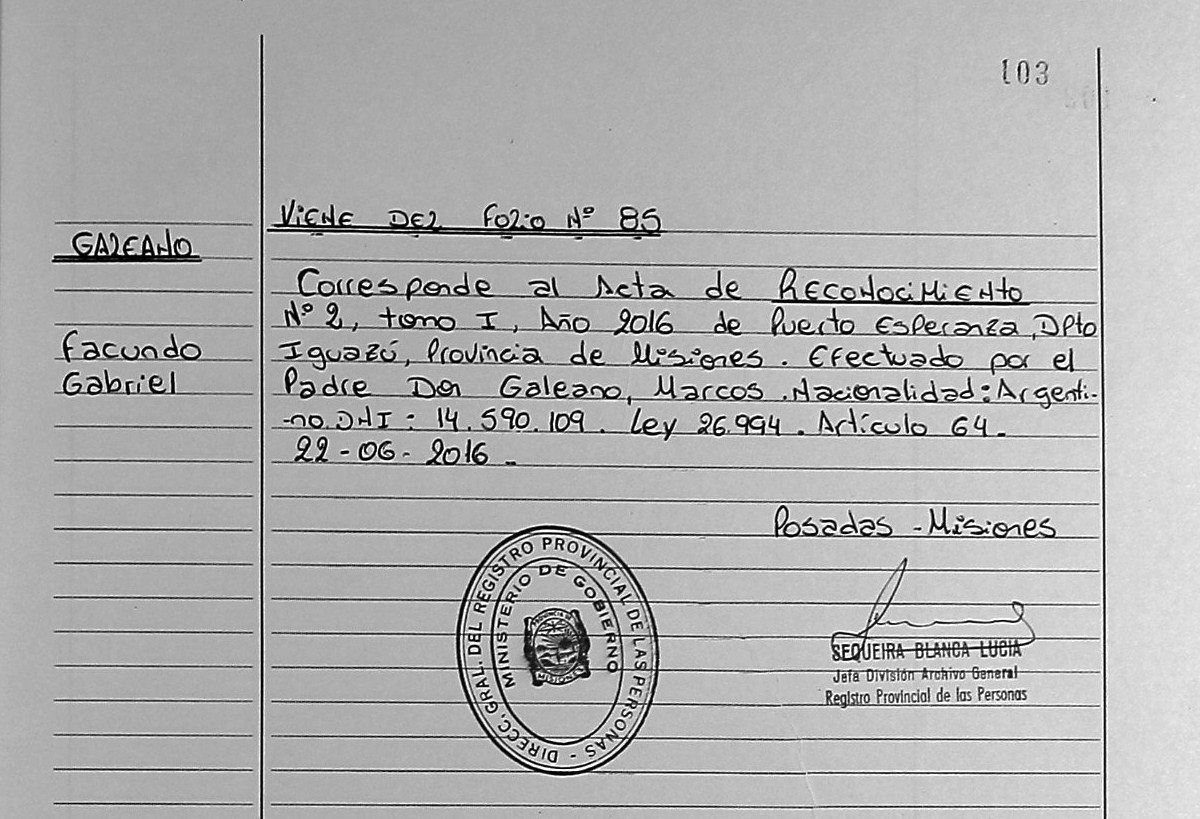 103
VIENE DEL FOLIO Nº 85
GALEANO
Facundo
Gabriel
Corresponde al Acta de RECONOCIMIENTO
Nº 2, tomo I, Año 2016 de Puerto Esperanza, Dpto
Iguazú, Provincia de Misiones. Efectuado por el
Padre Don Galeano, Marcos. Nacionalidad: Argenti-
-no. DNI: 14.590.109. Ley 26.994. Artículo 64.
22-06-2016.
Posadas - Misiones
DIRECC. GRAL. DEL REGISTRO PROVINCIAL DE LAS PERSONAS -
MINISTERIO DE GOBIERNO
PROVINCIA
MISIONES
SEQUEIRA BLANCA LUCIA
Jefa División Archivo General
Registro Provincial de las Personas